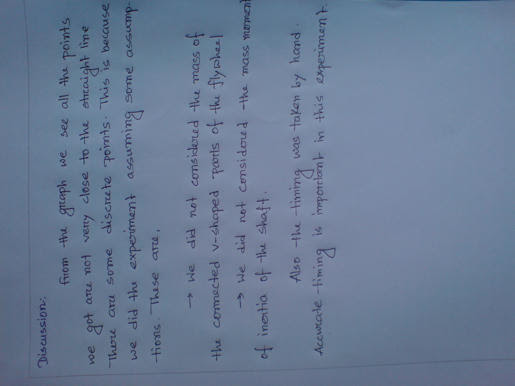 Discussion:
From the graph we see all the points
we got are not very close to the straight line
There are some discrete points. This is because
we did the experiment assuming some assump-
tions. These are,
→ we did not considered the mass of
the connected v-shaped parts of the flywheel
→ we did not considered the mass moment
of inertia of the shaft.
Also the timing was taken by hand.
Accurate timing is important in this experiment.